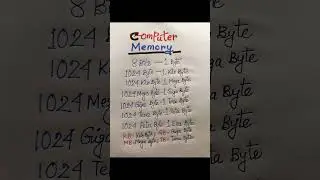 Computer
Memory
8 Bits — 1 Byte
1024 Byte — 1 Kilo Byte
1024 Kilo Byte 1 Mega Byte
1024 Mega Byte 1 Giga Byte
1024 Giga Byte 1 Tera Byte
1024 Tera Byte 1 Peta Byte
1024 Peta Byte 1 Exa Byte
KB = Kilo Byte, GB = Giga Byte
MB = Mega Byte, TB = Tera Byte
1024
1024
1024 Meg
1024 Giga
1024 Tera
Byte
Byte
Byte
Byte